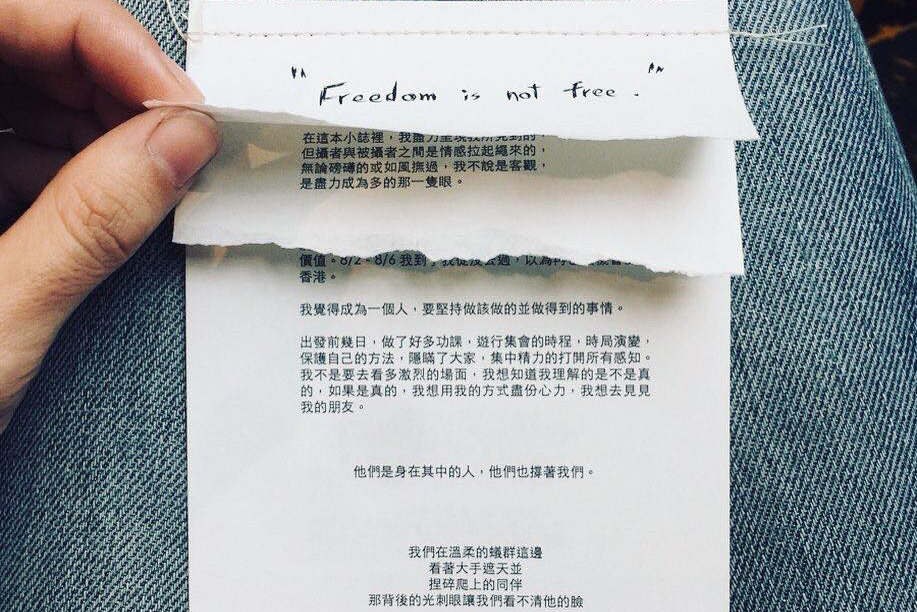 "Freedom is not free."
在這本小誌裡，我盡力呈現我所見到的，
但攝者與被攝者之間是情感拉起繩來的，
無論磅礡的或如風撫過，我不說是客觀，
是盡力成為多的那一隻眼。
價值。8/2。8/6 我到了我從沒去過，以為
香港。
我覺得成為一個人，要堅持做該做的並做得到的事情。
出發前幾日，做了好多功課，遊行集會的時程，時局演變，
保護自己的方法，隱瞞了大家，集中精力的打開所有感知。
我不是要去看多激烈的場面，我想知道我理解的是不是真
的，如果是真的，我想用我的方式盡份心力，我想去見見
我的朋友。
他們是身在其中的人，他們也撐著我們。
我們在溫柔的蟻群這邊
看著大手遮天並
捏碎爬上的同伴
那背後的光刺眼讓我們看不清他的臉